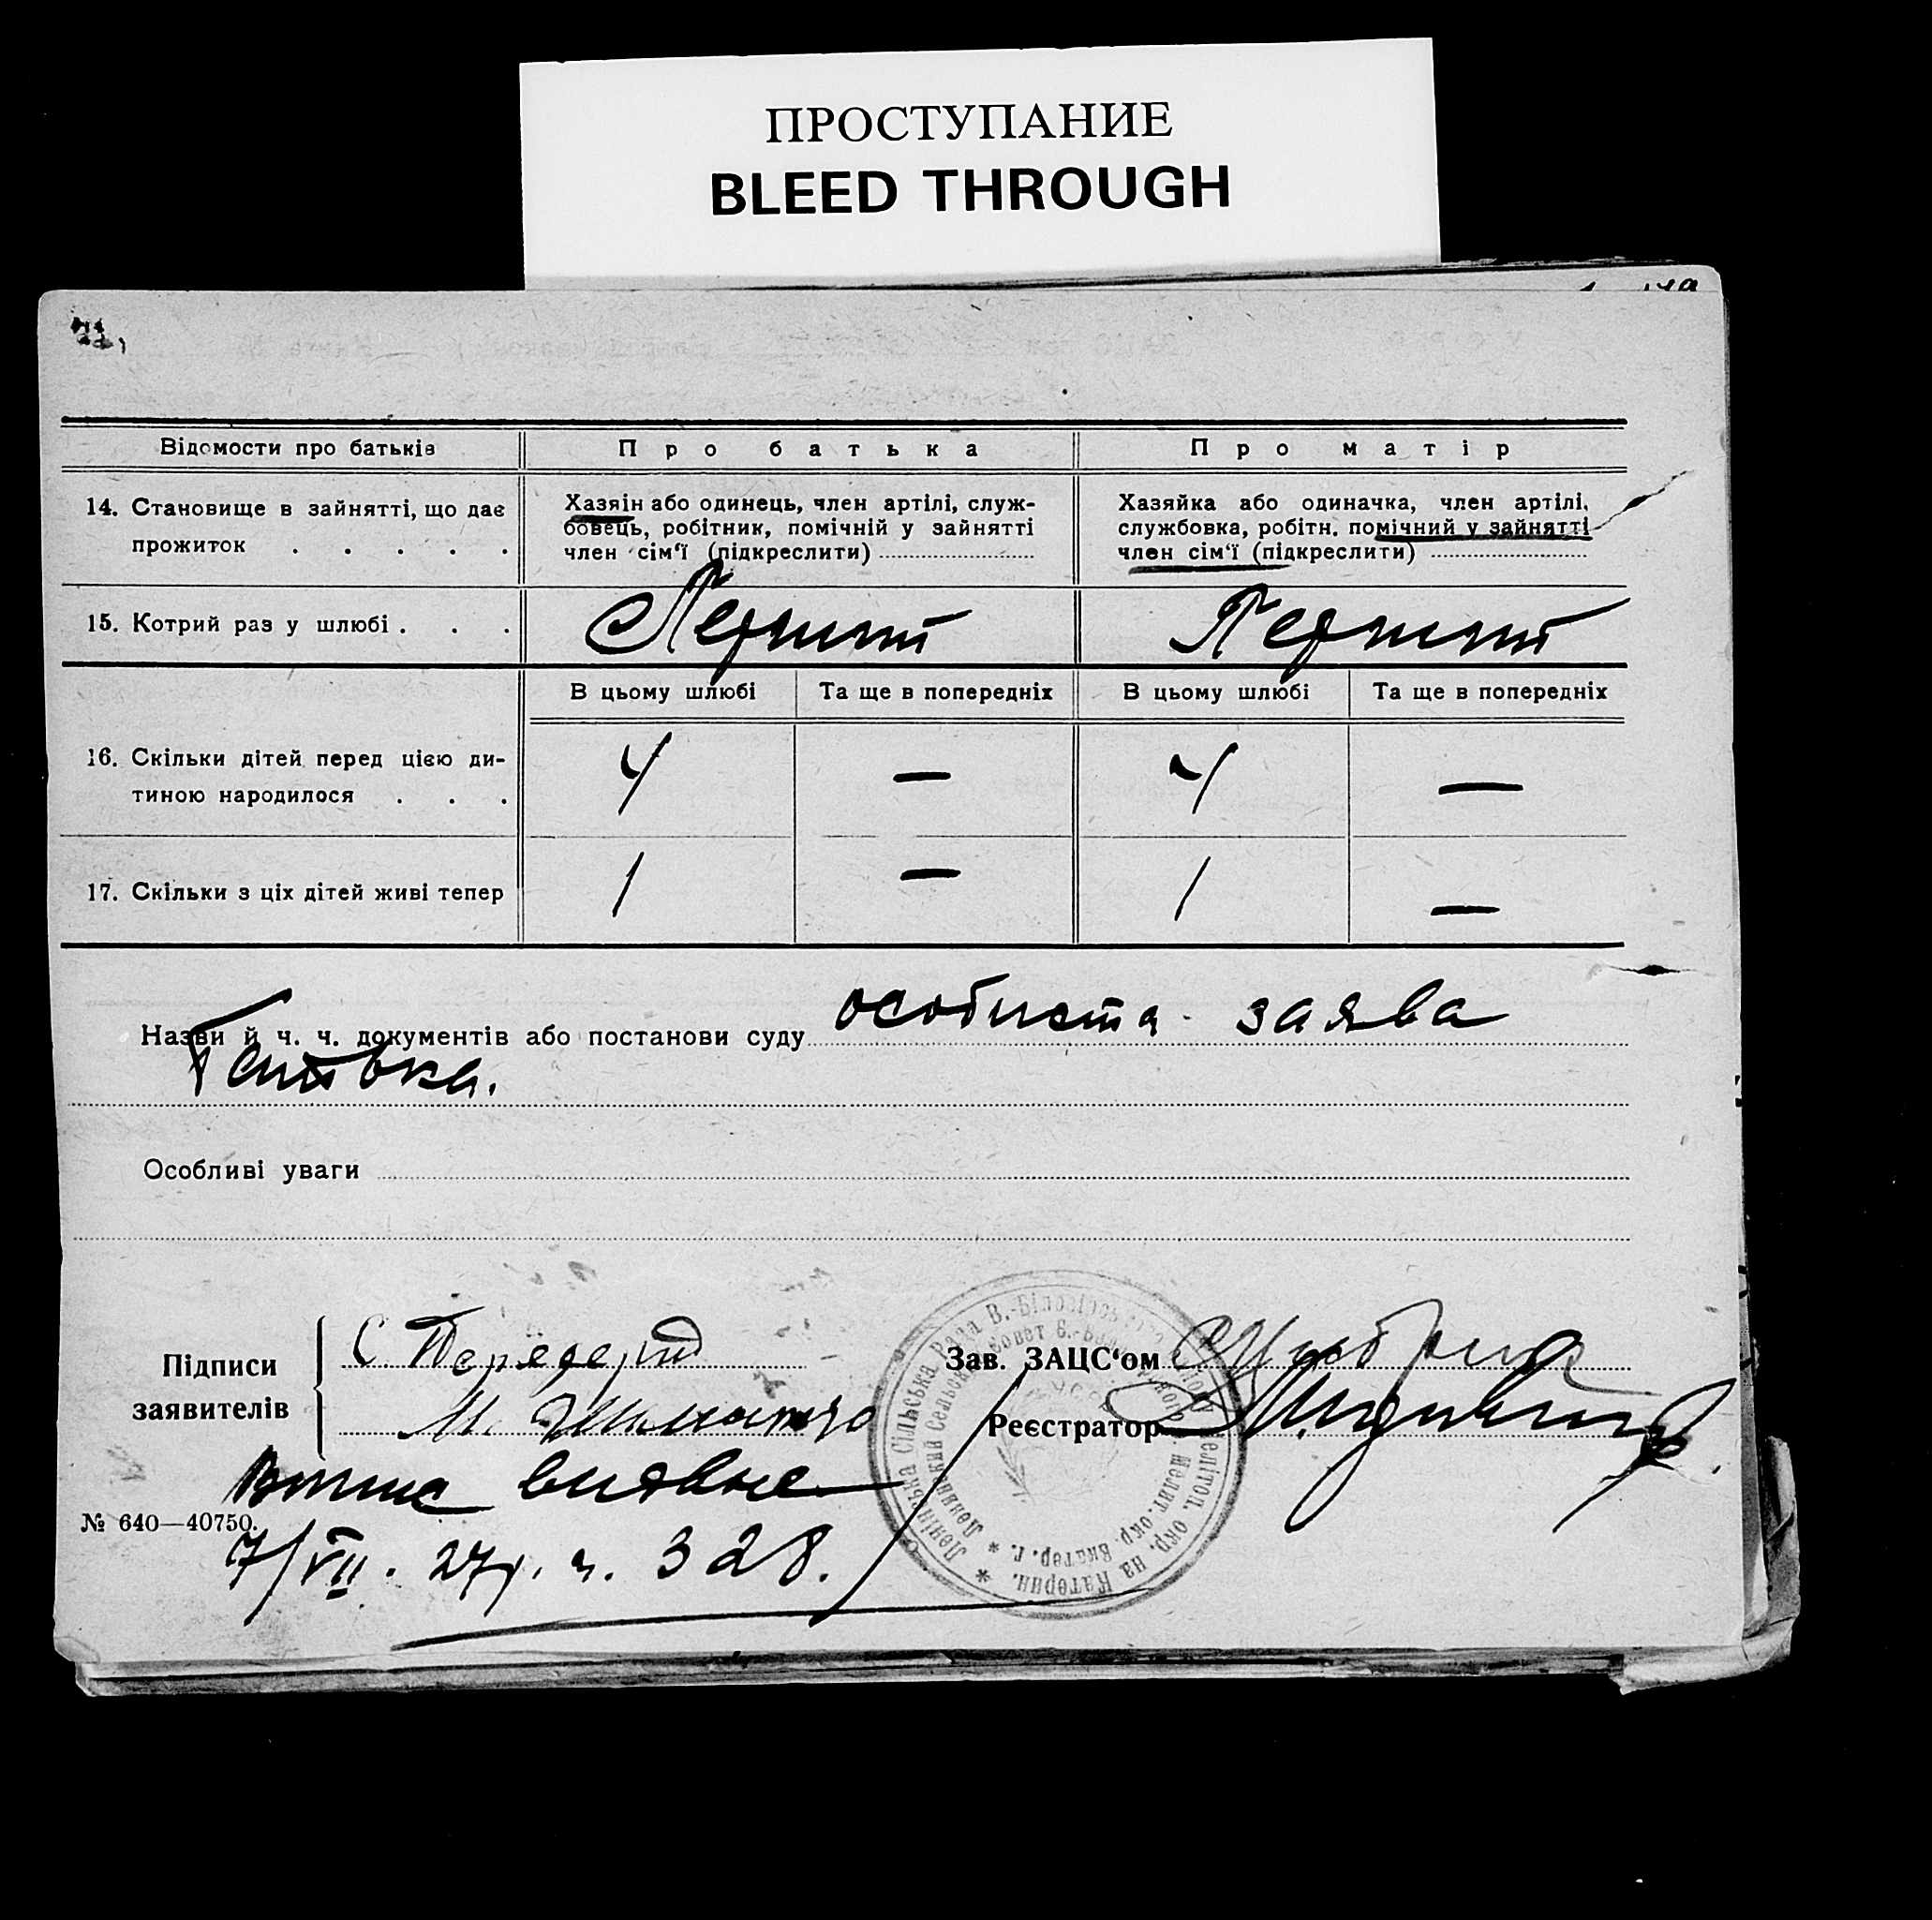 ПРОСТУПАНИЕ
BLEED THROUGH
Відомости про батьків
Про батька
Про матір
14. Становище в зайнятті, що дає
прожиток . . . . .
Хазяін або одинець, член артілі, служ-
бовець, робітник, помічній у зайнятті
член сім‘ї (підкреслити)
Хазяйка або одиначка, член артілі,
службовка, робітн. помічний у зайнятті
член сім‘ї (підкреслити)
15. Котрий раз у шлюбі . . .
Перший
Перший
В цьому шлюбі
Та ще в попередніх
В цьому шлюбі
Та ще в попередніх
16. Скільки дітей перед цією ди-
тиною народилося . . .
4 — 4 —
17. Скільки з ціх дітей живі тепер
1 — 1 —
Назви й ч. ч. документів або постанови суду особиста заява
Батька.
Особливі уваги
Підписи
заявителів
С. Передерій
М.
Зав. ЗАЦС‘ом
Реєстратор
Ленінська Сільська Рада В.-Білозірського Мелітоп. окр. на Катерин.
Випис видане
№ 640—40750.
7/VII. 27р. ч. 328.